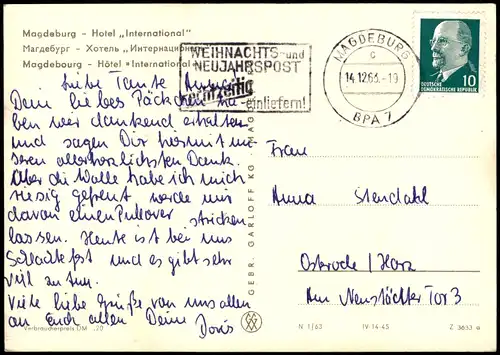 Magdeburg - Hotel „International"
Магдебург - Хотель „Интернацион
Magdebourg - Hôtel „International
WEIHNACHTS- und
NEUJAHRSPOST
rechtzeitig
einliefern!
MAGDEBURG
c
14.12.63.-19
BPA 7
10
DEUTSCHE
DEMOKRATISCHE REPUBLIK
Liebe Tante
Dein liebes Päckchen ha-
ben wir dankend erhalten
und sagen Dir hiermit un-
seren allerherzlichsten Dank.
Über die Wolle habe ich mich
riesig gefreut werde mir
davon einen Pullover stricken
lassen. Heute ist bei uns
Schlachtfest und es gibt sehr
viel zu tun.
Viele liebe Grüße von uns allen
an Euch allen Deine Doris
Verbraucherpreis DM -,20
GEBR. GARLOFF KG. MAG
Frau
Anna Stendahl
Osterode/Harz
Am Neustädter Tor 3
N 1/63
IV-14-45
Z 3653